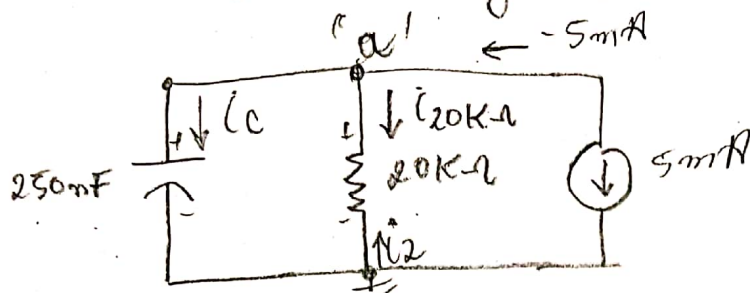 'a'
← -5mA
ic
i20KΩ
+
+
20KΩ
250nF
5mA
-
-
i2